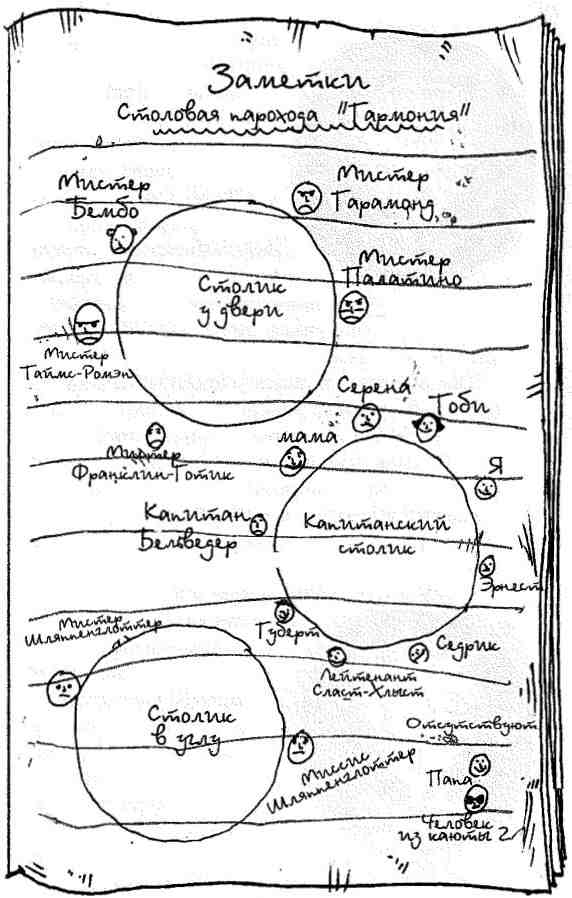 Заметки
Столовая парохода "Гармония"
Мистер
Бембо
Мистер
Гарамонд
Столик
у двери
Мистер
Палатино
Мистер
Таймс-Ромэн
Мистер
Франклин-Готик
Серена
Тоби
мама
Я
Капитан
Бельведер
Капитанский
столик
Эрнест
Туберт
Лейтенант
Сласт-Хлыст
Седрик
Мистер
Шляппенглоттер
Столик
в углу
Миссис
Шляппенглоттер
Отсутствуют
Папа
Человек
из каюты 2